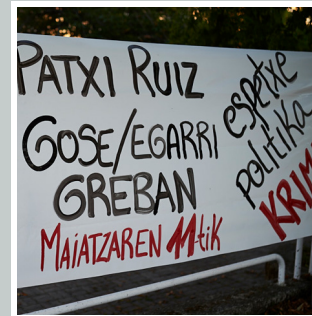 PATXI RUIZ
GOSE/EGARRI
GREBAN
MAIATZAREN 11tik
espetxe
politika